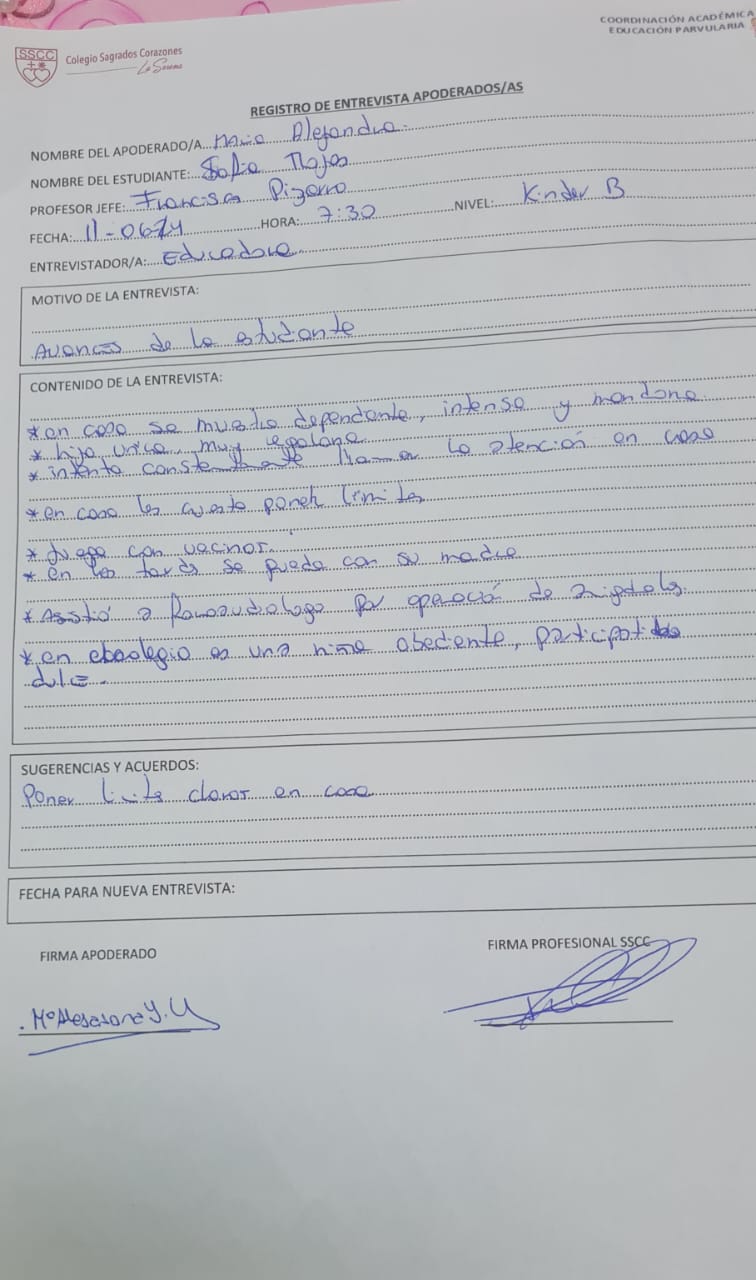 COORDINACIÓN ACADÉMICA
EDUCACIÓN PARVULARIA
SSCC
Colegio Sagrados Corazones
La Serena
REGISTRO DE ENTREVISTA APODERADOS/AS
NOMBRE DEL APODERADO/A: Maria Alejandra.
NOMBRE DEL ESTUDIANTE: Sofia Rojas
PROFESOR JEFE: Francisca Pizarro
FECHA: 11-06-24 HORA: 7:30 NIVEL: Kinder B
ENTREVISTADOR/A: Educadora
MOTIVO DE LA ENTREVISTA:
Avances de la estudiante
CONTENIDO DE LA ENTREVISTA:
* en casa se muestra dependiente, intensa y mandona
* hija unica, muy regalona
* intenta constantemente llamar la atención en casa
* en casa les cuesta poner limites
* Juega con vecinos.
* en las tardes se queda con su madre
* Asistió a Fonoaudiologo por operación de amigdalas
* en el colegio es una niña obediente, participativa
dulce.
SUGERENCIAS Y ACUERDOS:
Poner limites claros en casa
FECHA PARA NUEVA ENTREVISTA:
FIRMA APODERADO
FIRMA PROFESIONAL SSCC
Mª Alejandra Y.U